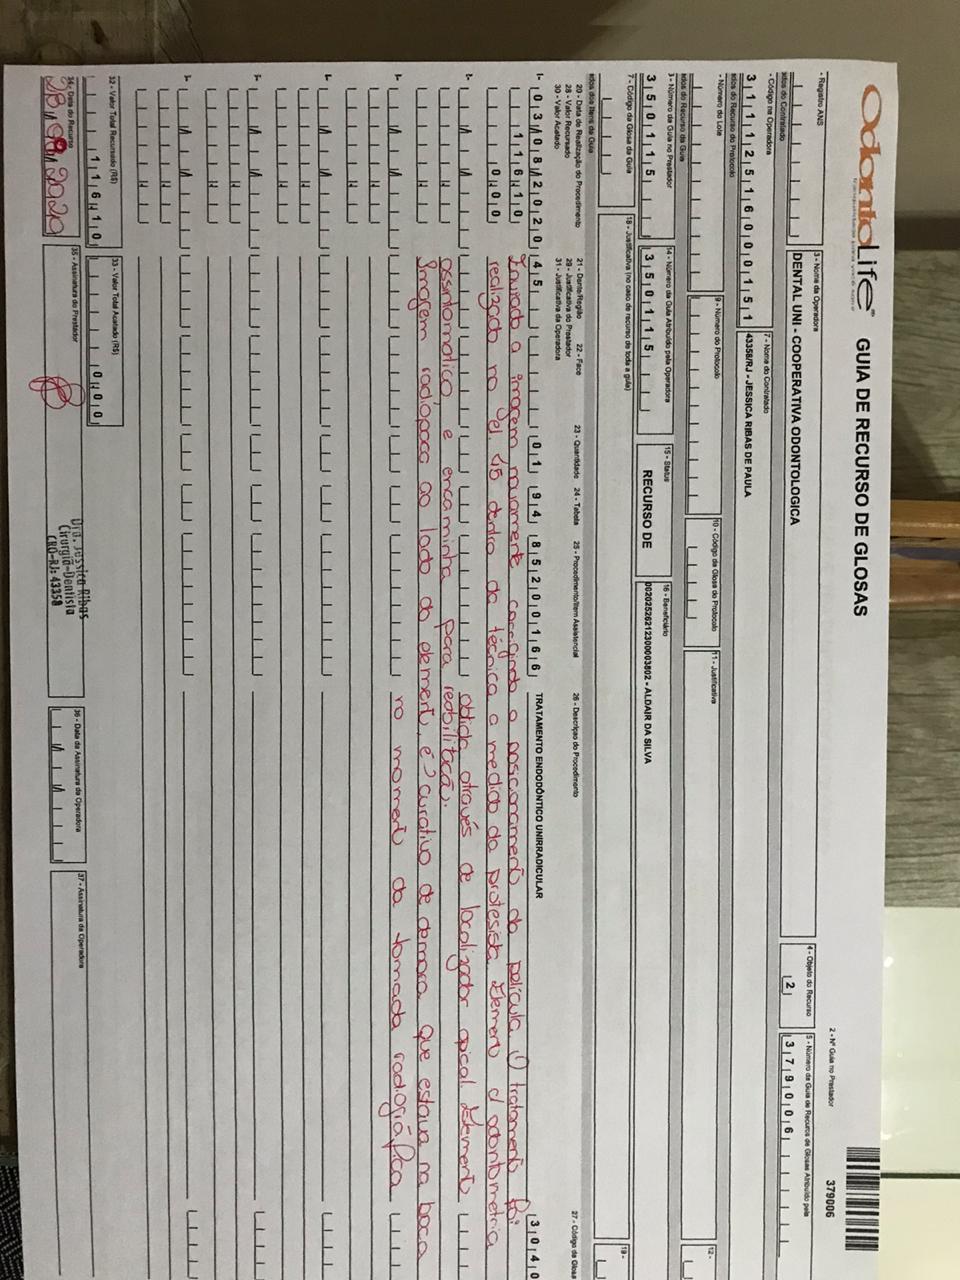 OdontoLife
GUIA DE RECURSO DE GLOSAS
2 - Nº Guia no Prestador
379006
- Registro ANS
3 - Nome da Operadora
DENTAL UNI - COOPERATIVA ODONTOLOGICA
4 - Objeto do Recurso
2
5 - Número da Guia de Recurso de Glosas Atribuído pela
379006
dos do Contratado
- Código na Operadora
31112516000151
7 - Nome do Contratado
43358/RJ - JESSICA RIBAS DE PAULA
dos do Recurso do Protocolo
- Número do Lote
9 - Número do Protocolo
10 - Código da Glosa do Protocolo
11 - Justificativa
12 -
dos do Recurso da Guia
3 - Número da Guia no Prestador
3501115
14 - Número da Guia Atribuído pela Operadora
3501115
15 - Status
RECURSO DE
16 - Beneficiário
00202526212300003802 - ALDAIR DA SILVA
7 - Código da Glosa da Guia
18 - Justificativa (no caso de recurso de toda a guia)
19 -
dos dos Itens da Guia
20 - Data de Realização do Procedimento
21 - Dente/Região
22 - Face
23 - Quantidade
24 - Tabela
25 - Procedimento/Item Assistencial
26 - Descrição do Procedimento
27 - Código da Glosa
28 - Valor Recursado
29 - Justificativa do Prestador
30 - Valor Acatado
31 - Justificativa da Operadora
1- 03/08/2020 45 01 94 85200166 TRATAMENTO ENDODÔNTICO UNIRRADICULAR 3040
116,10
0,00
a imagem novamente corrigindo o posicionamento da película. O tratamento foi
realizado no el 45 dentro da técnica a medida da
odontometria
obtida através de localizador apical. Elemento
assintomático, e encaminha para reabilitação.
Imagem radiopaca ao lado do elemento, é curativo de demora que estava na boca
no momento da tomada radiográfica
32 - Valor Total Recursado (R$)
116,10
33 - Valor Total Acatado (R$)
0,00
34 - Data do Recurso
2020
35 - Assinatura do Prestador
Dra. Jéssica Ribas
Cirurgiã-Dentista
CRO-RJ: 43358
36 - Data da Assinatura da Operadora
37 - Assinatura da Operadora